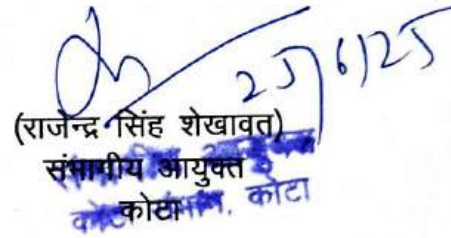 25/6/25
(राजेन्द्र सिंह शेखावत)
संभागीय आयुक्त
कोटा
कोटा संभाग, कोटा